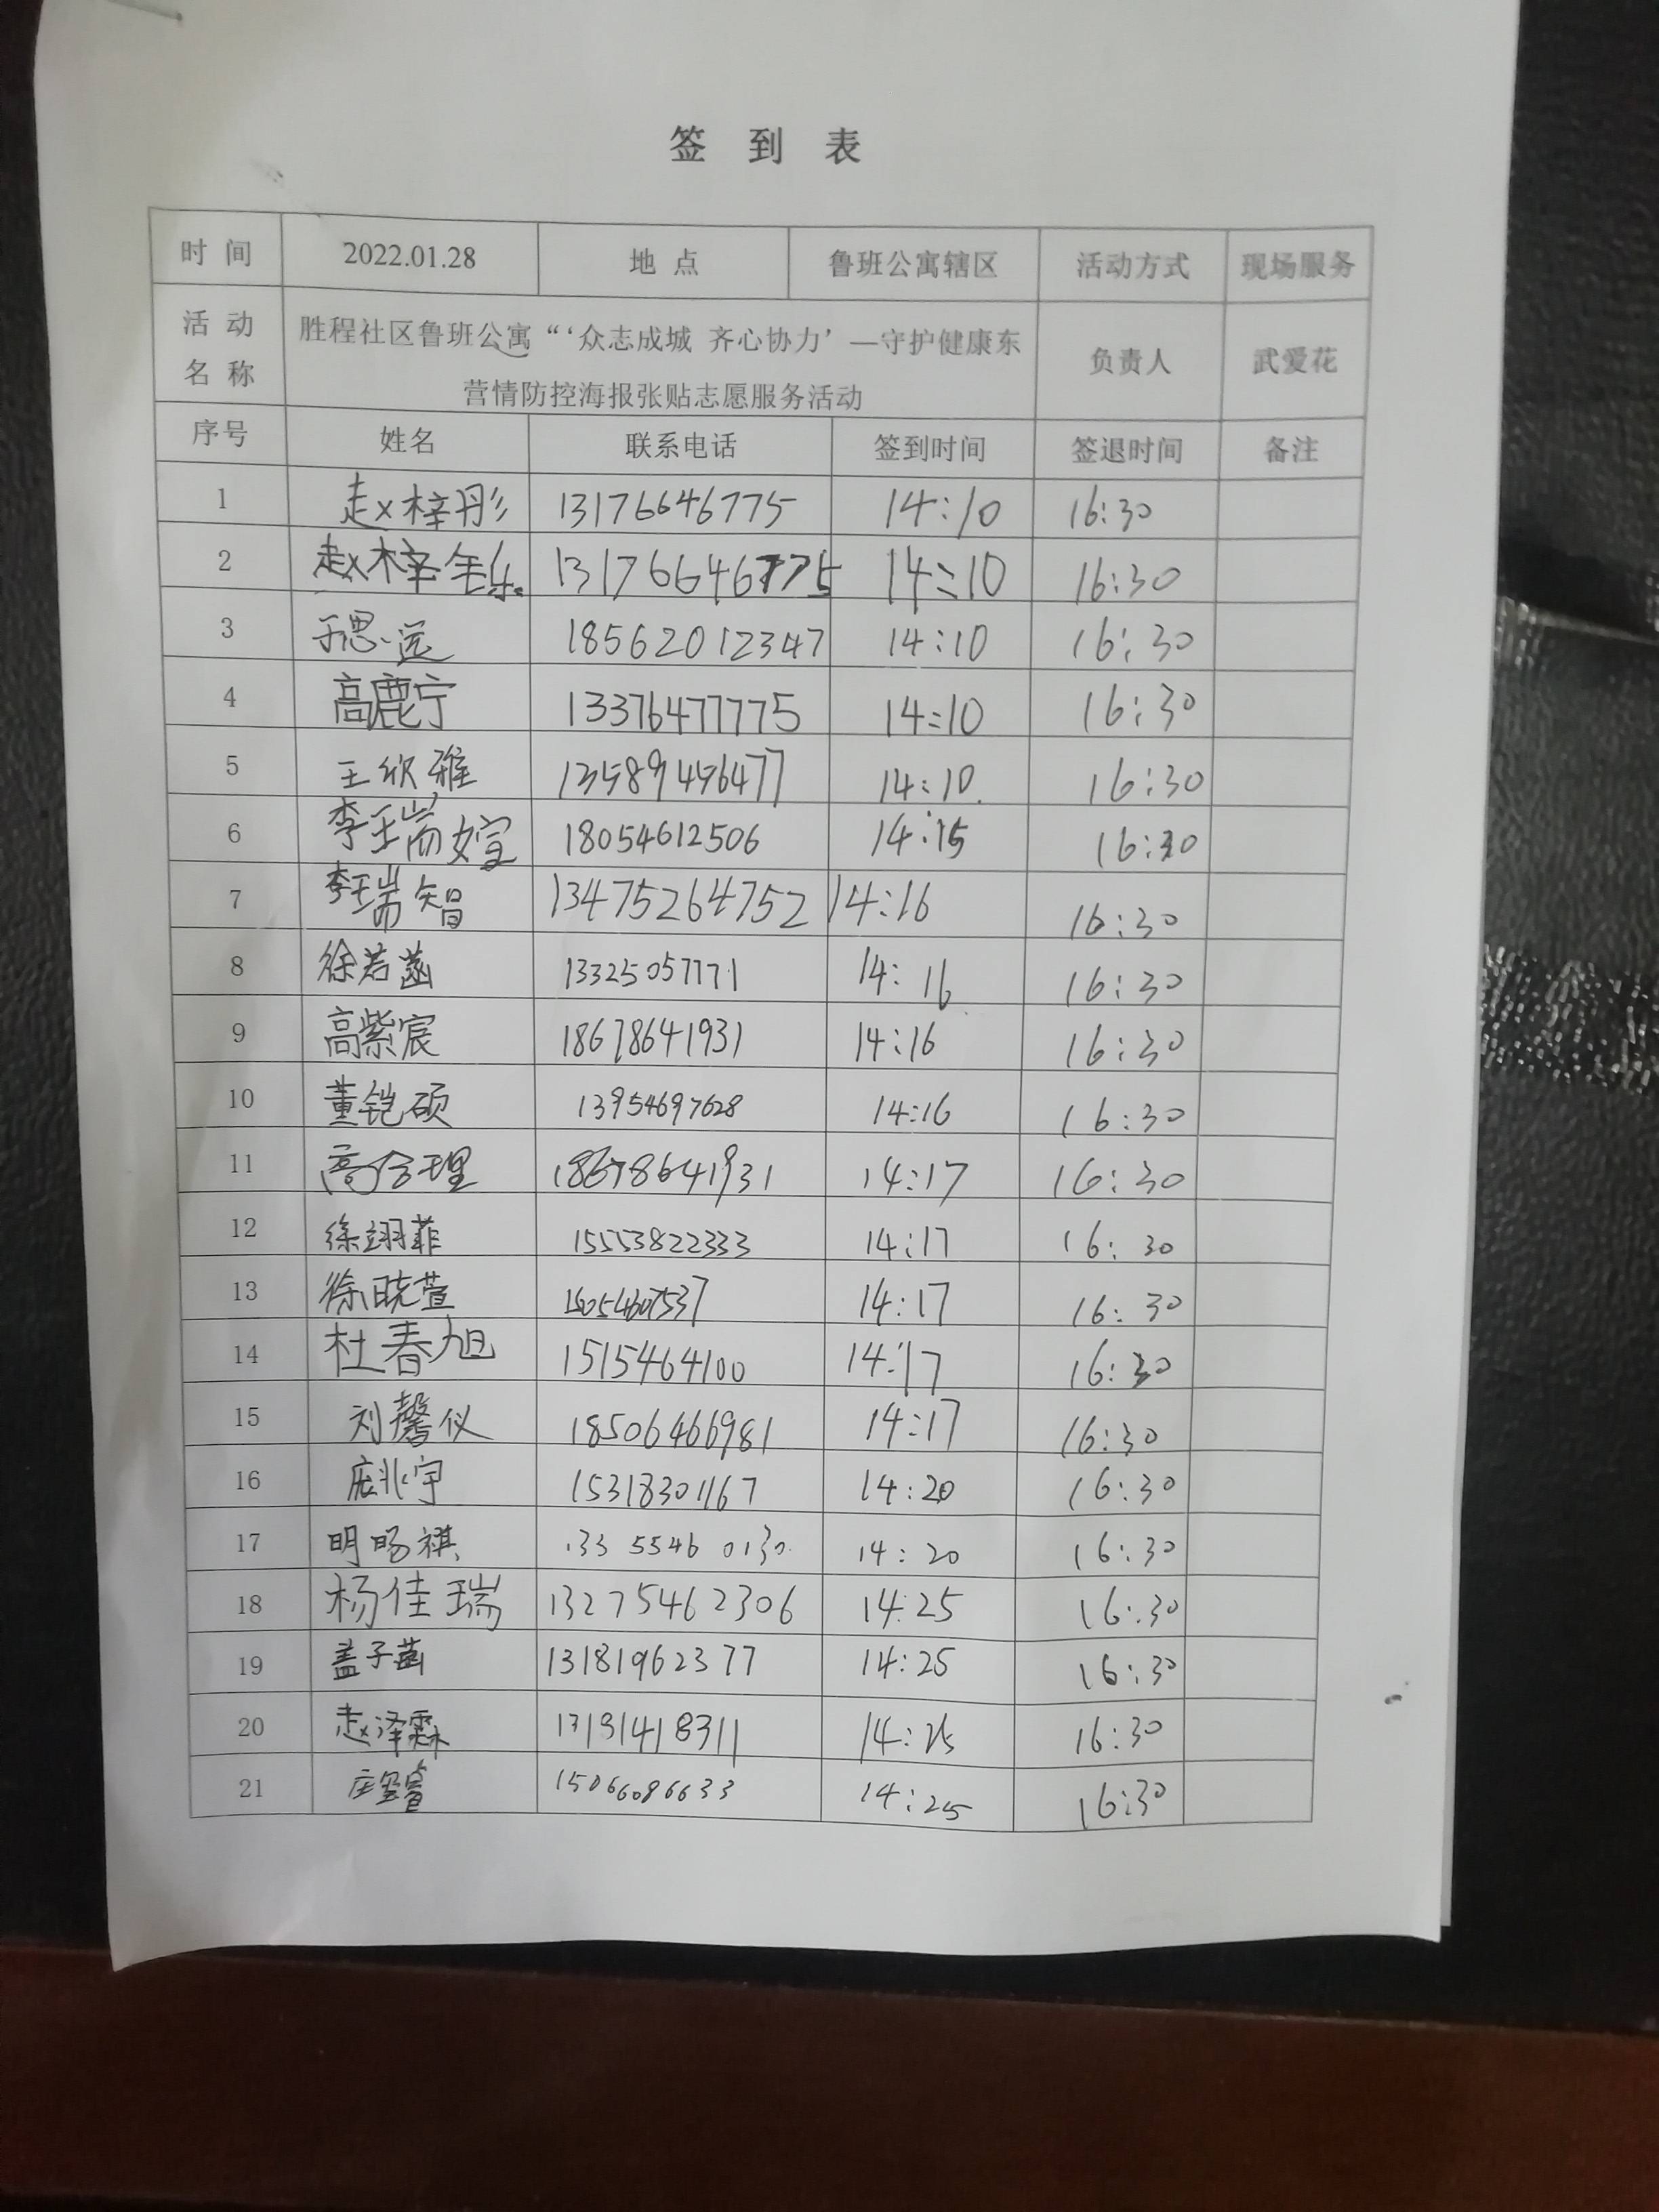 签 到 表
时 间 2022.01.28 地 点 鲁班公寓辖区 活动方式 现场服务
活 动 名 称 胜程社区鲁班公寓“‘众志成城 齐心协力’—守护健康东 负责人 武爱花
营情防控海报张贴志愿服务活动
序号 姓名 联系电话 签到时间 签退时间 备注
1 赵梓彤 13176646775 14:10 16:30
2 赵梓铄 13176646775 14:10 16:30
3 于思远 18562012347 14:10 16:30
4 高鹿宁 13376477775 14:10 16:30
5 王欣雅 13589456477 14:10 16:30
6 李瑞媗 18054612506 14:15 16:30
7 李瑞智 13475264752 14:16 16:30
8 徐若菡 13325057771 14:16 16:30
9 高紫宸 18678641931 14:16 16:30
10 董铠硕 13954697628 14:16 16:30
11 高合理 18678641931 14:17 16:30
12 徐翊菲 15553822333 14:17 16:30
13 徐晓萱 14:17 16:30
14 杜春旭 1515464100 14:17 16:30
15 刘馨仪 18506466981 14:17 16:30
16 庞兆宇 15318301167 14:20 16:30
17 明旸祺 133 5546 0130 14:20 16:30
18 杨佳瑞 13275462306 14:25 16:30
19 盖子菡 13181962377 14:25 16:30
20 赵泽霖 14:25 16:30
21 15066086633 14:25 16:30